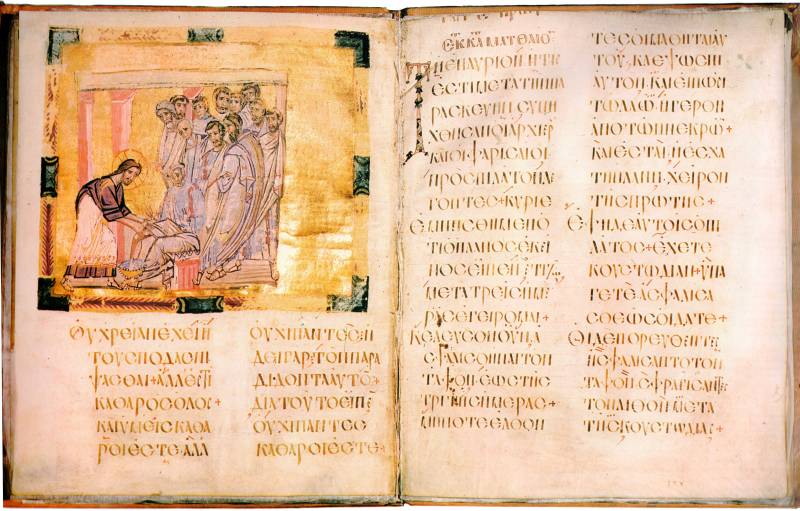 ΟΥ ΧΡΕΙΑΝ ΕΧΕΙ Η
ΤΟΥΣ ΠΟΔΑΣ ΝΙ
ΨΑΣΘΑΙ + ΑΛΛ ΕΣΤΙ
ΚΑΘΑΡΟΣ ΟΛΟΣ +
ΚΑΙ ΥΜΕΙΣ ΚΑΘΑ
ΡΟΙ ΕΣΤΕ ΑΛΛ
ΟΥΧΙ ΠΑΝΤΕΣ Η
ΔΕΙ ΓΑΡ ΤΟΝ ΠΑΡΑ
ΔΙΔΟΝΤΑ ΑΥΤΟ
ΔΙΑ ΤΟΥΤΟ ΕΙΠΕ
ΟΥΧΙ ΠΑΝΤΕΣ
ΚΑΘΑΡΟΙ ΕΣΤΕ
ΕΚ ΚΑΤΑ ΜΑΤΘΑΙΟ
ΤΗ ΕΠΑΥΡΙΟΝ ΗΤΙΣ
ΕΣΤΙ ΜΕΤΑ ΤΗΝ ΠΑ
ΡΑΣΚΕΥΗΝ ΣΥΝΗ
ΧΘΗΣΑΝ ΟΙ ΑΡΧΙΕΡ
ΚΑΙ ΟΙ ΦΑΡΙΣΑΙΟΙ
ΠΡΟΣ ΠΙΛΑΤΟΝ ΛΕ
ΓΟΝΤΕΣ + ΚΥΡΙΕ
ΕΜΝΗΣΘΗΜΕΝ Ο
ΤΙ Ο ΠΛΑΝΟΣ ΕΚΕΙ
ΝΟΣ ΕΙΠΕΝ ΕΤΙ ΖΩ
ΜΕΤΑ ΤΡΕΙΣ ΗΜΕ
ΡΑΣ ΕΓΕΙΡΟΜΑΙ +
ΚΕΛΕΥΣΟΝ ΟΥΝ Α
ΣΦΑΛΙΣΘΗΝΑΙ ΤΟΝ
ΤΑΦΟΝ ΕΩΣ ΤΗΣ
ΤΡΙΤΗΣ ΗΜΕΡΑΣ +
ΜΗΠΟΤΕ ΕΛΘΟΝ
ΤΕΣ ΟΙ ΜΑΘΗΤΑΙ ΑΥ
ΤΟΥ ΚΛΕΨΩΣΙ
ΑΥΤΟΝ ΚΑΙ ΕΙΠΩΣΙ
ΤΩ ΛΑΩ ΗΓΕΡΘΗ
ΑΠΟ ΤΩΝ ΝΕΚΡΩ +
ΚΑΙ ΕΣΤΑΙ Η ΕΣΧΑ
ΤΗ ΠΛΑΝΗ ΧΕΙΡΩΝ
ΤΗΣ ΠΡΩΤΗΣ +
ΕΦΗ ΔΕ ΑΥΤΟΙΣ Ο ΠΙ
ΛΑΤΟΣ + ΕΧΕΤΕ
ΚΟΥΣΤΩΔΙΑΝ + ΥΠΑ
ΓΕΤΕ ΑΣΦΑΛΙΣΑ
ΣΘΕ ΩΣ ΟΙΔΑΤΕ +
ΟΙ ΔΕ ΠΟΡΕΥΘΕΝΤΕ
ΗΣΦΑΛΙΣΑΝΤΟ ΤΟΝ
ΤΑΦΟΝ ΣΦΡΑΓΙΣΑΝΤΕ
ΤΟΝ ΛΙΘΟΝ ΜΕΤΑ
ΤΗΣ ΚΟΥΣΤΩΔΙΑΣ +